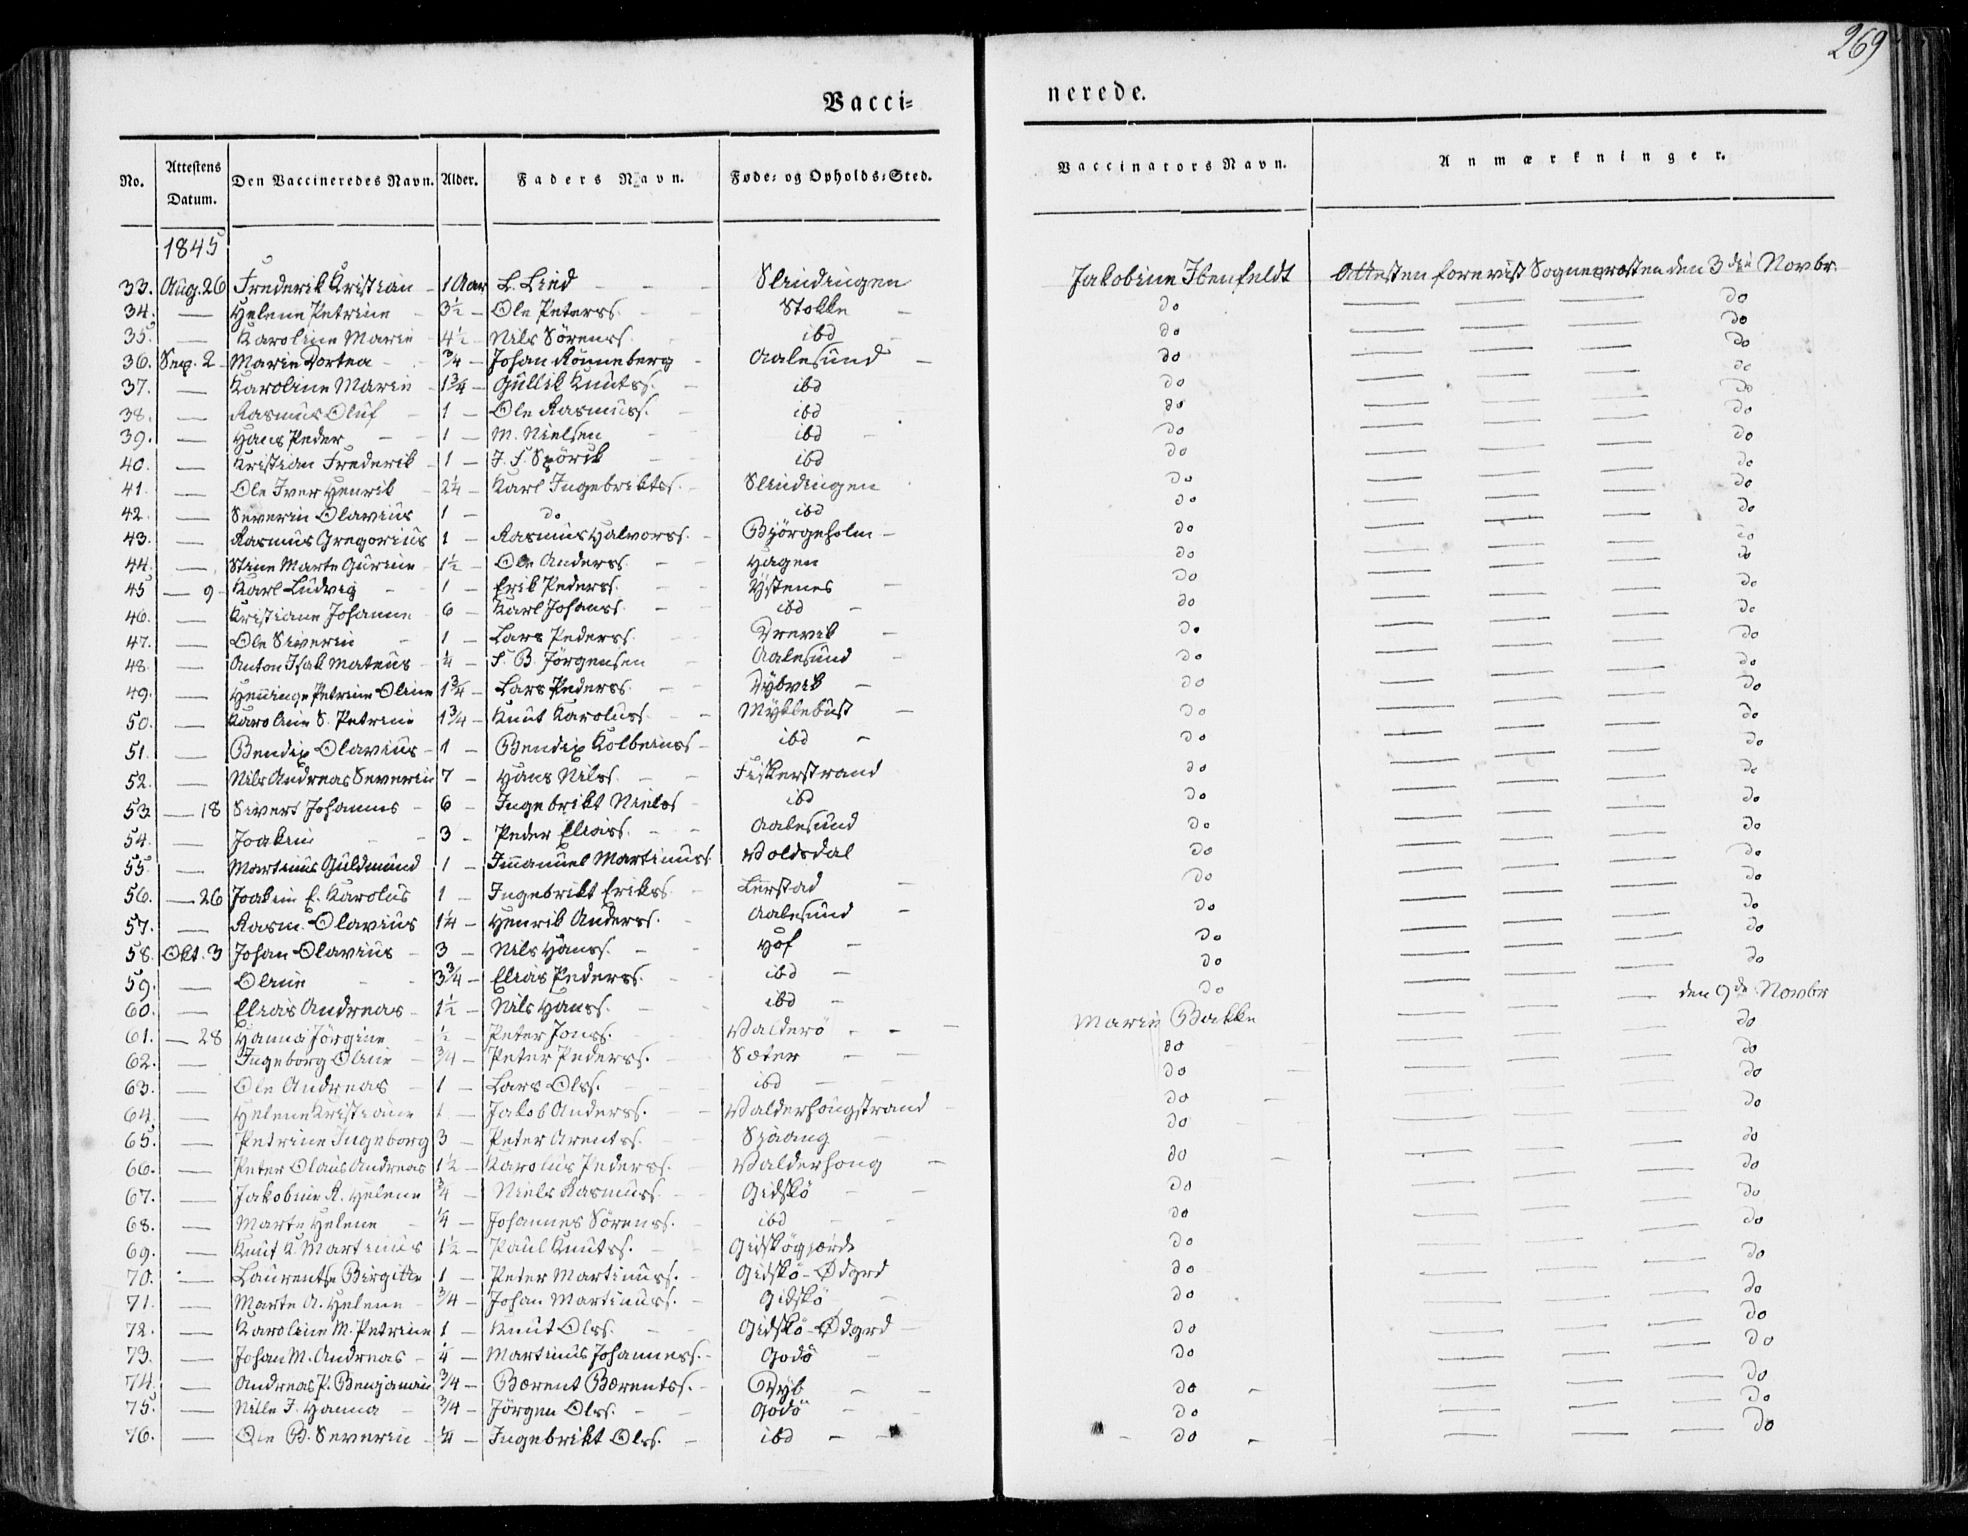 269
Vacci= nerede.
No. Attestens Datum. Den Vaccineredes Navn. Alder. Faders Navn. Føde= og Opholds=Sted. Vaccinators Navn. Anmærkninger.
1845
33. Aug. 26 Frederik Kristian - 1 Aar L. Lied - - - Slindingen Jakobine Ibenfeldt Attesten forevist Sogneprosten den 3die Novbr.
34. — Helene Petrine - 3½ - Ole Peterss. - Stokke - do — — — do
35. — Karoline Marie - 4½ - Nils Sörenss. ibd do — — — do
36. Sep. 2 - Marie Dortea - ¾ - Johan Rönneberg - Aalesund - do — — — do
37. — Karoline Marie - 1¾ - Gullik Knutss. - ibd do — — — do
38. — Rasmus Oluf - 1 - Ole Rasmuss. - ibd do — — — do
39. — Hans Peder - - 1 - M. Nielsen - ibd - do — — — do
40. — Kristian Frederik - 1 - J. F. Spörck - ibd do — — — do
41. — Ole Iver Henrik - 2¼ - Karl Ingebriktss. - Slindingen do — — — do
42. — Severin Olavius 1 - do ibd do — — — do
43. — Rasmus Gregorius 1 - Rasmus Halvorss. - Bjørgeholm - do — — — do
44. — Stine Marte Gurine - 1½ - Ole Anderss. - - Hagen do — — — do
45 — 9 - Karl Ludvig - - 1 - Erik Pederss. - Ystenes - do — — — do
46. — Kristiane Johanne - 6 - Karl Johanss. - ibd - do — — — do
47. — Ole Siverin - 1 - Lars Pederss. - - do — — — do
48. — Anton Isak Mateus - ¼ - F. B. Jörgensen - Aalesund - do — — — do
49. — Henninge Petrine Oline 1¾ - Lars Pederss. - - Dybvik - do — — — do
50. — Karoline S. Petrine 1¾ - Knut Karoluss. - - Myklebust - do — — — do
51. — Bendix Olavius - 1 - Bendix Kolbeinss - ibd - do — — — do
52. — Nils Andreas Severin 7 - Hans Nilss. - - Fiskerstrand do — — — do
53. — 18 Sivert Johannes - 6 - Ingebrikt Nielss - ibd do — — — do
54. — Joakim - 3 - Peder Eliass. - - Aalesund do — — — do
55. — Martinus Guldmund 1 - Immanuel Martinuss Voldsdal do — — — do
56. — 26 Joakim E. Karolus 1 - Ingebrikt Erikss. - Lerstad - do — — — do
57. — Rasm. Olavius 1¼ - Henrik Anderss. - Aalesund - do — — — do
58. Okt. 3 Johan Olavius - 3 - Nils Hanss. - - Hof - do — — — do
59. — Oline - - 3¾ - Elias Pederss. - ibd - do — — — do
60. — Elias Andreas - 1½ - Nils Hanss. - ibd - do — — — den 9de Novbr
61. — 28 Hanna Jörgine - ½ - Peter Jonss. - Valderö - - - Marie Bakke — — — do
62. — Ingeborg Oline - ¾ - Peter Pederss. - Sæter - - do — — — do
63. — Ole Andreas - 1 - Lars Olss. - ibd - - do — — — do
64. — Helene Kristiane 1 - Jakob Anderss. - - Valderhougstrand - do — — — do
65. — Petrine Ingeborg 3 - Peter Arentss. - Sjaang - do — — — do
66. — Peter Olaus Andreas 1½ - Karolus Pederss. - Valderhoug - do — — — do
67. — Jakobine R. Helene ¾ - Niels Rasmuss. - Gidskö - - do — — — do
68. — Marte Helene - ¼ - Johannes Sörenss. - ibd - - do — — — do
69. — Knut K. Martinus 1½ - Paul Knutss. - Gidskögjærde do — — — do
70. — Laurentse Birgitte 1 - Peter Martinuss. - Gidskö-Ødgrd do — — — do
71. — Marte A. Helene - ¾ - Johan Martinuss. - Gidskö - do — — — do
72. — Karoline M. Petrine 1 - Knut Olss. - - Gidskö-Ødgrd - do — — — do
73. — Johan M. Andreas - ¼ - Martinus Johanness. - Godö - do — — — do
74. — Andreas P. Benjamin ¾ - Bærent Bærentss. - - - do - — — — do
75. — Nille J. Hanna - ¾ - Jörgen Olss. - - Godö - - do — — — do
76. — Ole B. Severin - ¼ - Ingebrikt Olss. - ibd - - do - — — — do